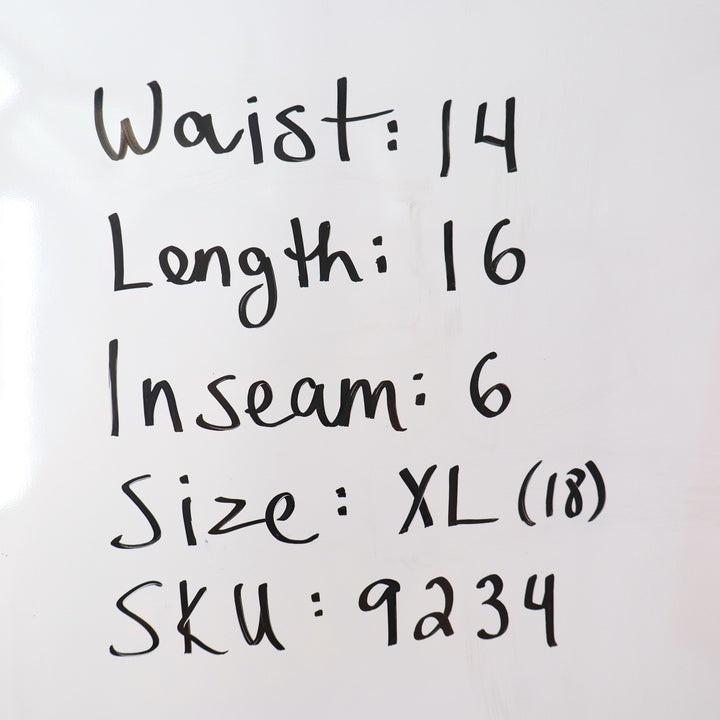 Waist: 14
Length: 16
Inseam: 6
Size: XL (18)
SKU: 9234